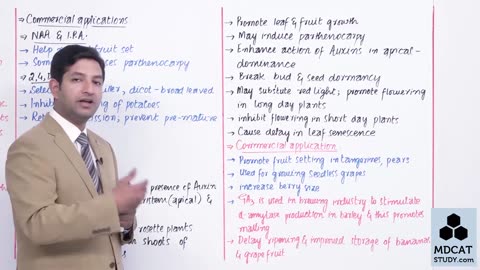 → Commercial applications
→ NAA & I.P.A.
→ Help fruit set
→ Som ses parthenocarpy
2,4,D
→ Selec ller, dicot-broad leaved
→ Inhibit ting of potatoes
→ Ret ission, prevent pre-mature
presence of Auxins
ristem (apical) &
rosette plants
n shoots of
→ Promote leaf & fruit growth
→ May induce parthenocarpy
→ Enhance action of Auxins in apical-
dominance
→ Break bud & seed dormancy
→ May substitute red light; promote flowering
in long day plants
→ inhibit flowering in short day plants
→ Cause delay in leaf senescence
→ Commercial application
→ Promote fruit setting in tangerines, pears
→ Used for growing seedless grapes
→ increase berry size
→ GA3 is used in brewing industry to stimulate
α amylase production in barley & this promotes
malting
→ Delay ripening & improved storage of bananas
& grape fruit
MDCAT
STUDY.com